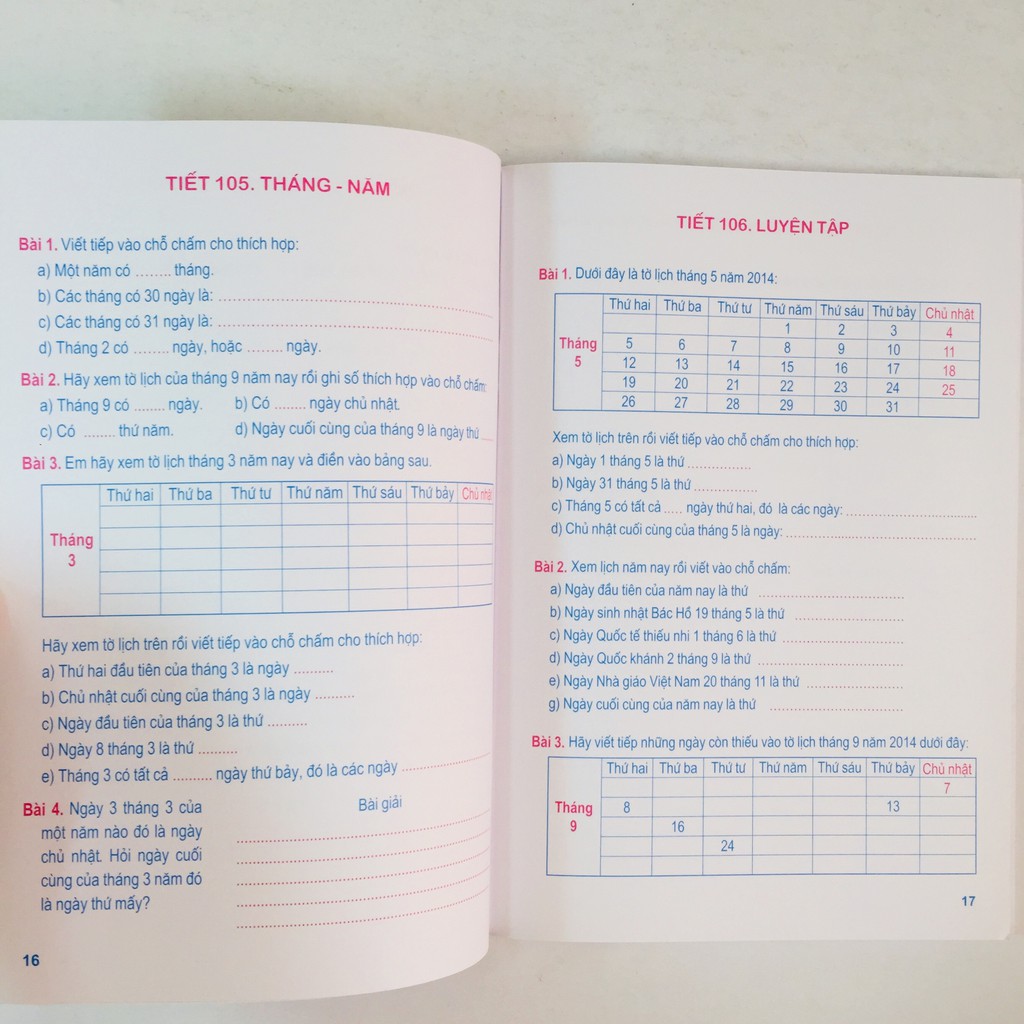 TIẾT 105. THÁNG - NĂM
Bài 1. Viết tiếp vào chỗ chấm cho thích hợp:
a) Một năm có ........ tháng.
b) Các tháng có 30 ngày là: ........
c) Các tháng có 31 ngày là: ........
d) Tháng 2 có ........ ngày, hoặc ........ ngày.
Bài 2. Hãy xem tờ lịch của tháng 9 năm nay rồi ghi số thích hợp vào chỗ chấm:
a) Tháng 9 có ........ ngày. b) Có ........ ngày chủ nhật.
c) Có ........ thứ năm. d) Ngày cuối cùng của tháng 9 là ngày thứ ...
Bài 3. Em hãy xem tờ lịch tháng 3 năm nay và điền vào bảng sau.
Thứ hai Thứ ba Thứ tư Thứ năm Thứ sáu Thứ bảy Chủ nhật
Tháng
3
Hãy xem tờ lịch trên rồi viết tiếp vào chỗ chấm cho thích hợp:
a) Thứ hai đầu tiên của tháng 3 là ngày .........
b) Chủ nhật cuối cùng của tháng 3 là ngày .........
c) Ngày đầu tiên của tháng 3 là thứ .........
d) Ngày 8 tháng 3 là thứ .........
e) Tháng 3 có tất cả ......... ngày thứ bảy, đó là các ngày .........
Bài 4. Ngày 3 tháng 3 của
một năm nào đó là ngày
chủ nhật. Hỏi ngày cuối
cùng của tháng 3 năm đó
là ngày thứ mấy?
Bài giải
16
TIẾT 106. LUYỆN TẬP
Bài 1. Dưới đây là tờ lịch tháng 5 năm 2014:
Thứ hai Thứ ba Thứ tư Thứ năm Thứ sáu Thứ bảy Chủ nhật
Tháng
5
1 2 3 4
5 6 7 8 9 10 11
12 13 14 15 16 17 18
19 20 21 22 23 24 25
26 27 28 29 30 31
Xem tờ lịch trên rồi viết tiếp vào chỗ chấm cho thích hợp:
a) Ngày 1 tháng 5 là thứ ...............
b) Ngày 31 tháng 5 là thứ ...............
c) Tháng 5 có tất cả ..... ngày thứ hai, đó là các ngày: ...............
d) Chủ nhật cuối cùng của tháng 5 là ngày: ...............
Bài 2. Xem lịch năm nay rồi viết vào chỗ chấm:
a) Ngày đầu tiên của năm nay là thứ ...............
b) Ngày sinh nhật Bác Hồ 19 tháng 5 là thứ ...............
c) Ngày Quốc tế thiếu nhi 1 tháng 6 là thứ ...............
d) Ngày Quốc khánh 2 tháng 9 là thứ ...............
e) Ngày Nhà giáo Việt Nam 20 tháng 11 là thứ ...............
g) Ngày cuối cùng của năm nay là thứ ...............
Bài 3. Hãy viết tiếp những ngày còn thiếu vào tờ lịch tháng 9 năm 2014 dưới đây:
Thứ hai Thứ ba Thứ tư Thứ năm Thứ sáu Thứ bảy Chủ nhật
Tháng
9
7
8 13
16
24
17